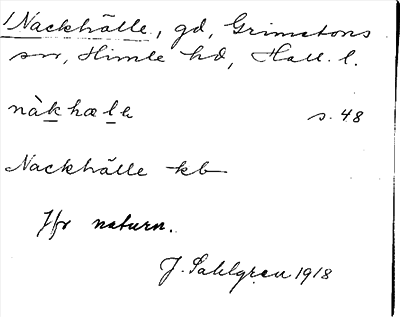 1 Nackhälle, gd, Grimetons
sn, Himle hd, Hall. l.
nàk hælε s. 48
Nackhälle kb
Jfr naturn.
J. Sahlgren 1918